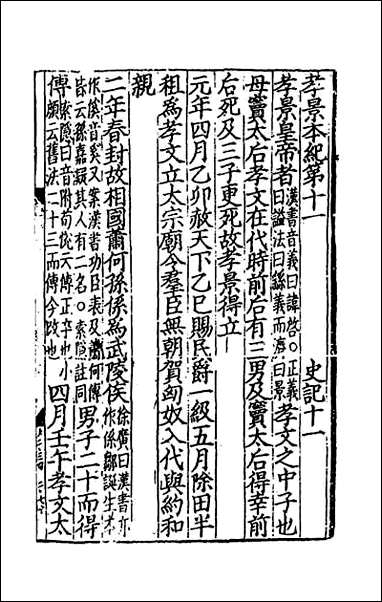 孝景本紀第十一 史記十一
孝景皇帝者漢書音義曰諱啓○正義曰謚法曰繇義而濟曰景孝文之中子也
母竇太后孝文在代時前后有三男及竇太后得幸前
后死及三子更死故孝景得立
元年四月乙卯赦天下乙巳賜民爵一級五月除田半
租爲孝文立太宗廟令羣臣無朝賀匈奴入代與約和
親
二年春封故相國蕭何孫係爲武陵侯徐廣曰漢書亦作係鄒誕生本作傒音奚又案漢書功臣表及蕭何傳皆云孫嘉疑其人有二名○索隱註同男子二十而得
傅索隱曰音附荀悅云傅正卒也小顏云舊法二十三而傅今改也四月壬午孝文太